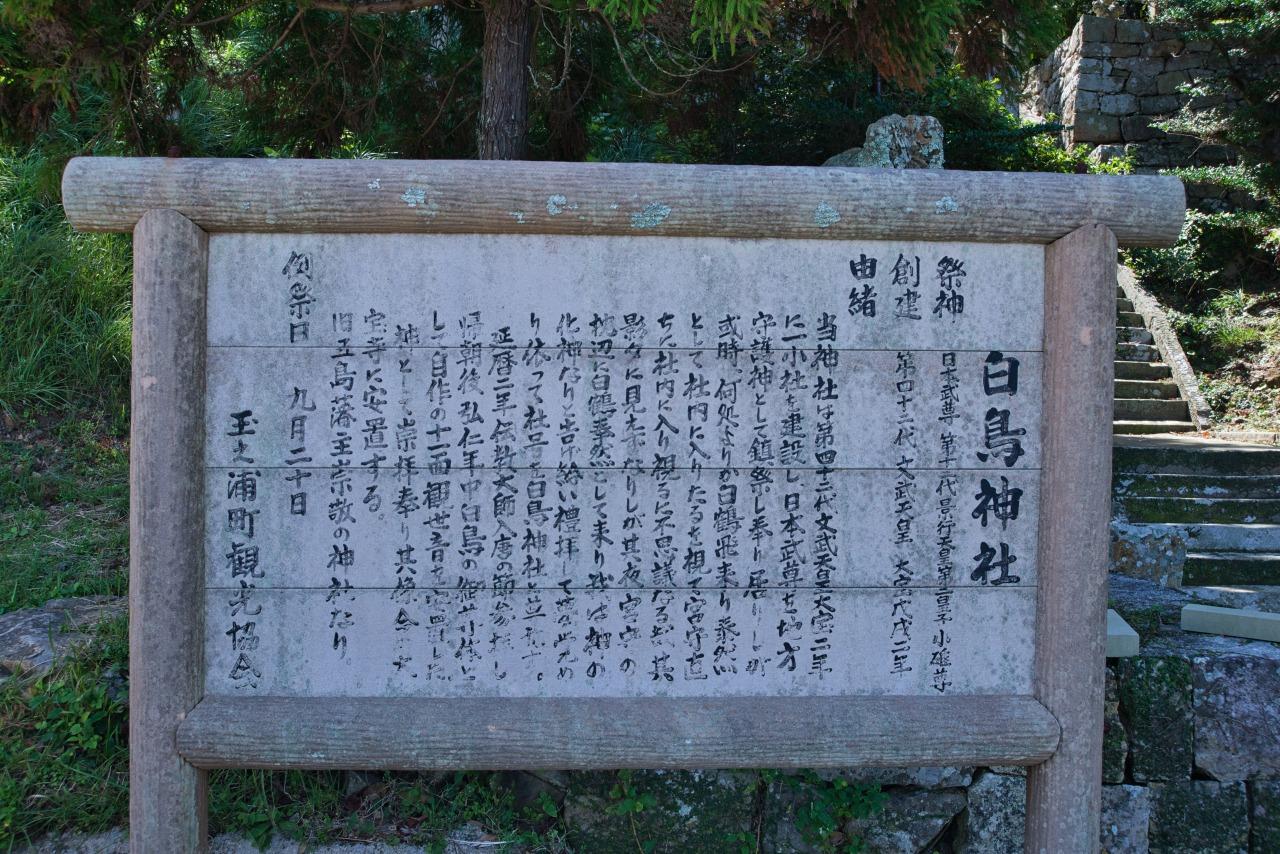 白鳥神社
祭神 日本武尊 第十二代景行天皇第二皇子 小碓尊
創建 第四十二代 文武天皇 大宝戊戌二年
由緒
当神社は第四十二代文武天皇大宝二年
に小社を建設し、日本武尊を地方
守護神として鎮祭し奉り居りしが
或時、何処よりか白鶴飛来り忝然
として社内に入りたるを視て宮守直
ちに社内に入り視るに不思議なるが其
影更に見えずなりしが其夜宮守の
枕辺に白鶴忝然として来り我は神の
化神なりと告げ給い禮拝して
り依って社号を白鳥神社と
延暦二年伝教大師入唐の節参拝し
帰朝後弘仁年中白鳥の御
して自作の十一面観世音を安置した
神として崇拝奉り其像今
宝寺に安置する。
旧五島藩主崇敬の神社たり。
例祭日 九月二十日
玉之浦町観光協会